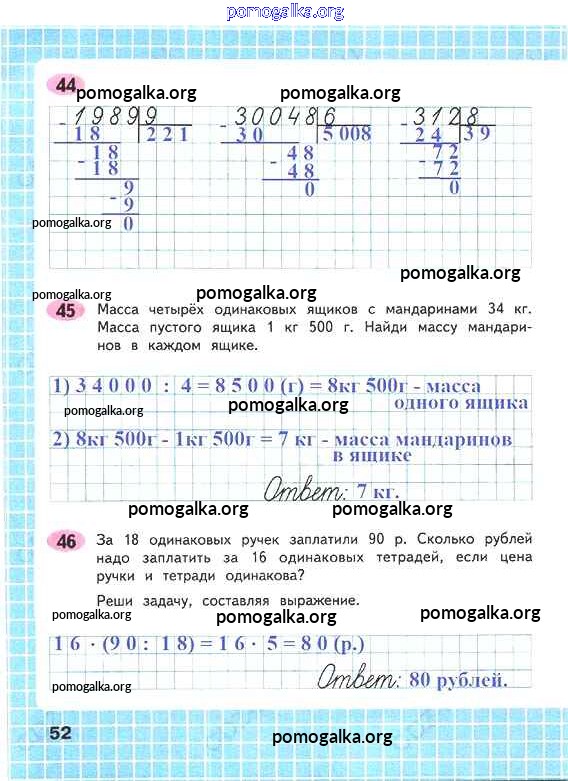 pomogalka.org
44
pomogalka.org pomogalka.org
19899 300486 3128
18 221 30 5 008 24 39
18 48 72
18 48 72
9 0 0
9
pomogalka.org 0
pomogalka.org
pomogalka.org
45 Масса четырёх одинаковых ящиков с мандаринами 34 кг.
Масса пустого ящика 1 кг 500 г. Найди массу мандари-
нов в каждом ящике.
1) 3 4 0 0 0 : 4 = 8 5 0 0 (г) = 8кг 500г - масса
pomogalka.org pomogalka.org одного ящика
2) 8кг 500г - 1кг 500г = 7 кг - масса мандаринов
в ящике
Ответ: 7 кг.
pomogalka.org pomogalka.org
46 За 18 одинаковых ручек заплатили 90 р. Сколько рублей
надо заплатить за 16 одинаковых тетрадей, если цена
ручки и тетради одинакова?
Реши задачу, составляя выражение.
pomogalka.org pomogalka.org pomogalka.org
1 6 · (9 0 : 1 8) = 1 6 · 5 = 8 0 (р.)
Ответ: 80 рублей.
pomogalka.org
52
pomogalka.org